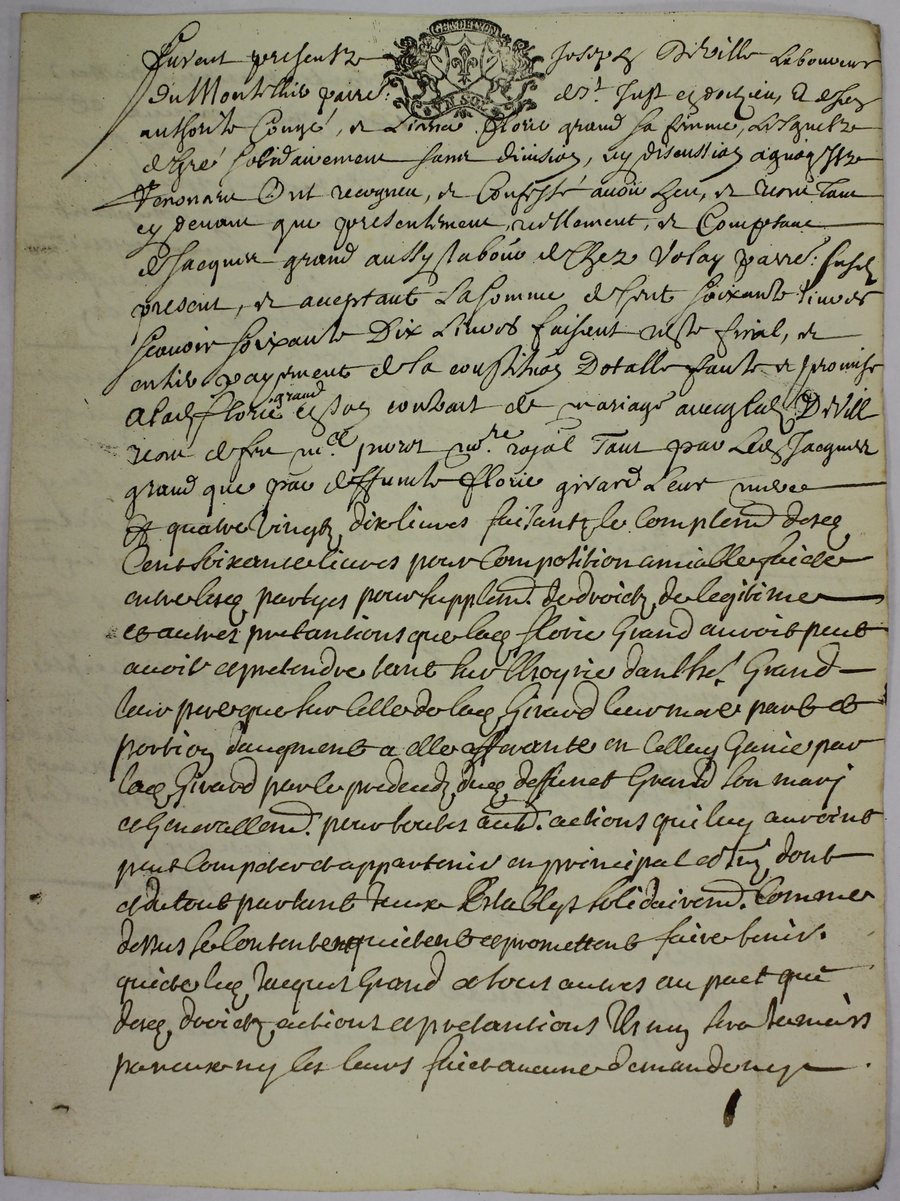 GEN. DE LYON
UN SOL
Furent presentz Joseph Deville Laboureur
du Monteillier parr. de St. Just en et de sa
authorité Congé, et Licence florie grand sa femme, Lesquelz
de gré solidairement sans division, ny discussion
Renonçant Ont recogneu, et Confessé avoir heu, et receu Tant
cy devant que presentement, reellement, et Comptant
de Jacques grand aussy labour de chez Volay parr. susd.
present, et acceptant La somme de Cent soixante livres
scavoir soixante Dix Livres faisant reste final, et
entier payement de la constitution Dotalle faite et promise
a lad. florie grand en son contrat de mariage avec led. Deville
receu de feu me. notre. royal Tant par Led. Jacques
grand que par deffunte florie girard Leur mere
Et quatre vingtz dix livres faisantz le Complemd. desd.
Cent soixante livres pour Composition amiable faicte
entre lesd. partyes pour supplemd. de droictz de legitime
et autres pretantions que lad. florie Grand auroit peut
avoir et pretendre tant sur l'hoyrie d'Anthe. Grand
leur pere que sur Celle de lad. Girard leur mere part et
portion d'augment a elle afferante en Celluy Ganié par
lad. Girard par le predeceds dud. deffunct Grand son mary
et Generallemd. pour toutes autres. actions qui luy auroint
peut Competer et appartenir en principal et Intz. dont
et du tout partant Iceux Establys solidairemd. Comme
dessus se Contentent quictent et promettent faire tenir
quicte led. Jacques Grand et tous autres au pact que
desd. droictz actions et pretantions Il n'en sera Jamais
par eux ny les leurs faict aucune demande ny